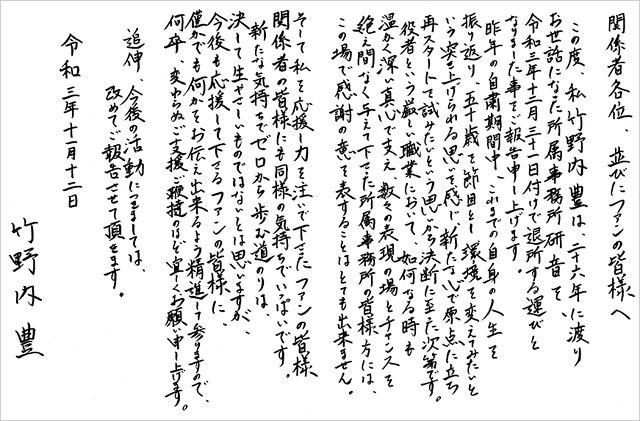 関係者各位、並びにファンの皆様へ
この度、私 竹野内豊は、二十六年に渡り
お世話になった所属事務所研音を
令和三年十二月三十一日付けで退所する運びと
なりました事をご報告申し上げます。
昨年の自粛期間中、これまでの自身の人生を
振り返り、五十歳を節目とし環境を変えてみたいと
いう突き上げられる思いを感じ、新たな心で原点に立ち
再スタートして試みたいという思いから決断に至った次第です。
役者という厳しい職業において、如何なる時も
温かく深い真心で支え、数々の表現の場とチャンスを
絶え間なく与えて下さった所属事務所の皆様方には、
この場で感謝の意を表することはとても出来ません。
そして私を応援し力を注いで下さったファンの皆様
関係者の皆様にも同様の気持ちでいっぱいです。
新たな気持ちでゼロから歩む道のりは、
決して生やさしいものではないとは思いますが、
今後も応援して下さるファンの皆様に、
僅かでも何かをお伝え出来るよう精進して参りますので、
何卒、変わらぬご支援ご鞭撻のほど宜しくお願い申し上げます。
追伸、今後の活動につきましては、
改めてご報告させて頂きます。
令和三年十一月十二日
竹野内 豊